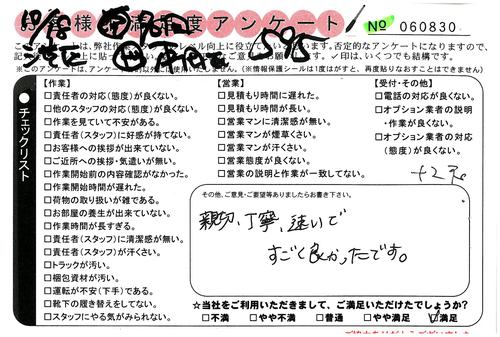 お客様満足度アンケート
No 060830
このアンケートは、弊社作業スタッフのレベル向上に役立てたいと思います。否定的なアンケートになりますので、
※このアンケートは、
(※情報保護シールは1度はがすと、再度貼りなおすことはできません)
●チェックリスト
【作業】
□責任者の対応(態度)が良くない。
□他のスタッフの対応(態度)が良くない。
□作業を見ていて不安がある。
□責任者(スタッフ)に好感が持てない。
□お客様への挨拶が出来ていない。
□ご近所への挨拶・気遣いが無い。
□作業開始前の内容確認がなかった。
□作業開始時間が遅れた。
□荷物の取り扱いが雑である。
□お部屋の養生が出来ていない。
□作業時間が長すぎる。
□責任者(スタッフ)に清潔感が無い。
□責任者(スタッフ)が汗くさい。
□トラックが汚い。
□梱包資材が汚い。
□運転が不安(下手)である。
□靴下の履き替えをしてない。
□スタッフにやる気がみられない。
【営業】
□見積もり時間に遅れた。
□見積もり時間が長い。
□営業マンに清潔感が無い。
□営業マンが煙草くさい。
□営業マンが汗くさい。
□営業態度が良くない。
□営業の説明と作業が一致してない。
【受付・その他】
□電話の対応が良くない。
□オプション業者の説明
・作業が良くない。
□オプション業者の対応
(態度)が良くない。
その他、ご意見・ご要望等ありましたらお書き下さい。
親切、丁寧、速いで
すごく良かったです。
☆当社をご利用いただきまして、ご満足いただけたでしょうか?
□不満 □やや不満 □普通 □やや満足 ☑満足